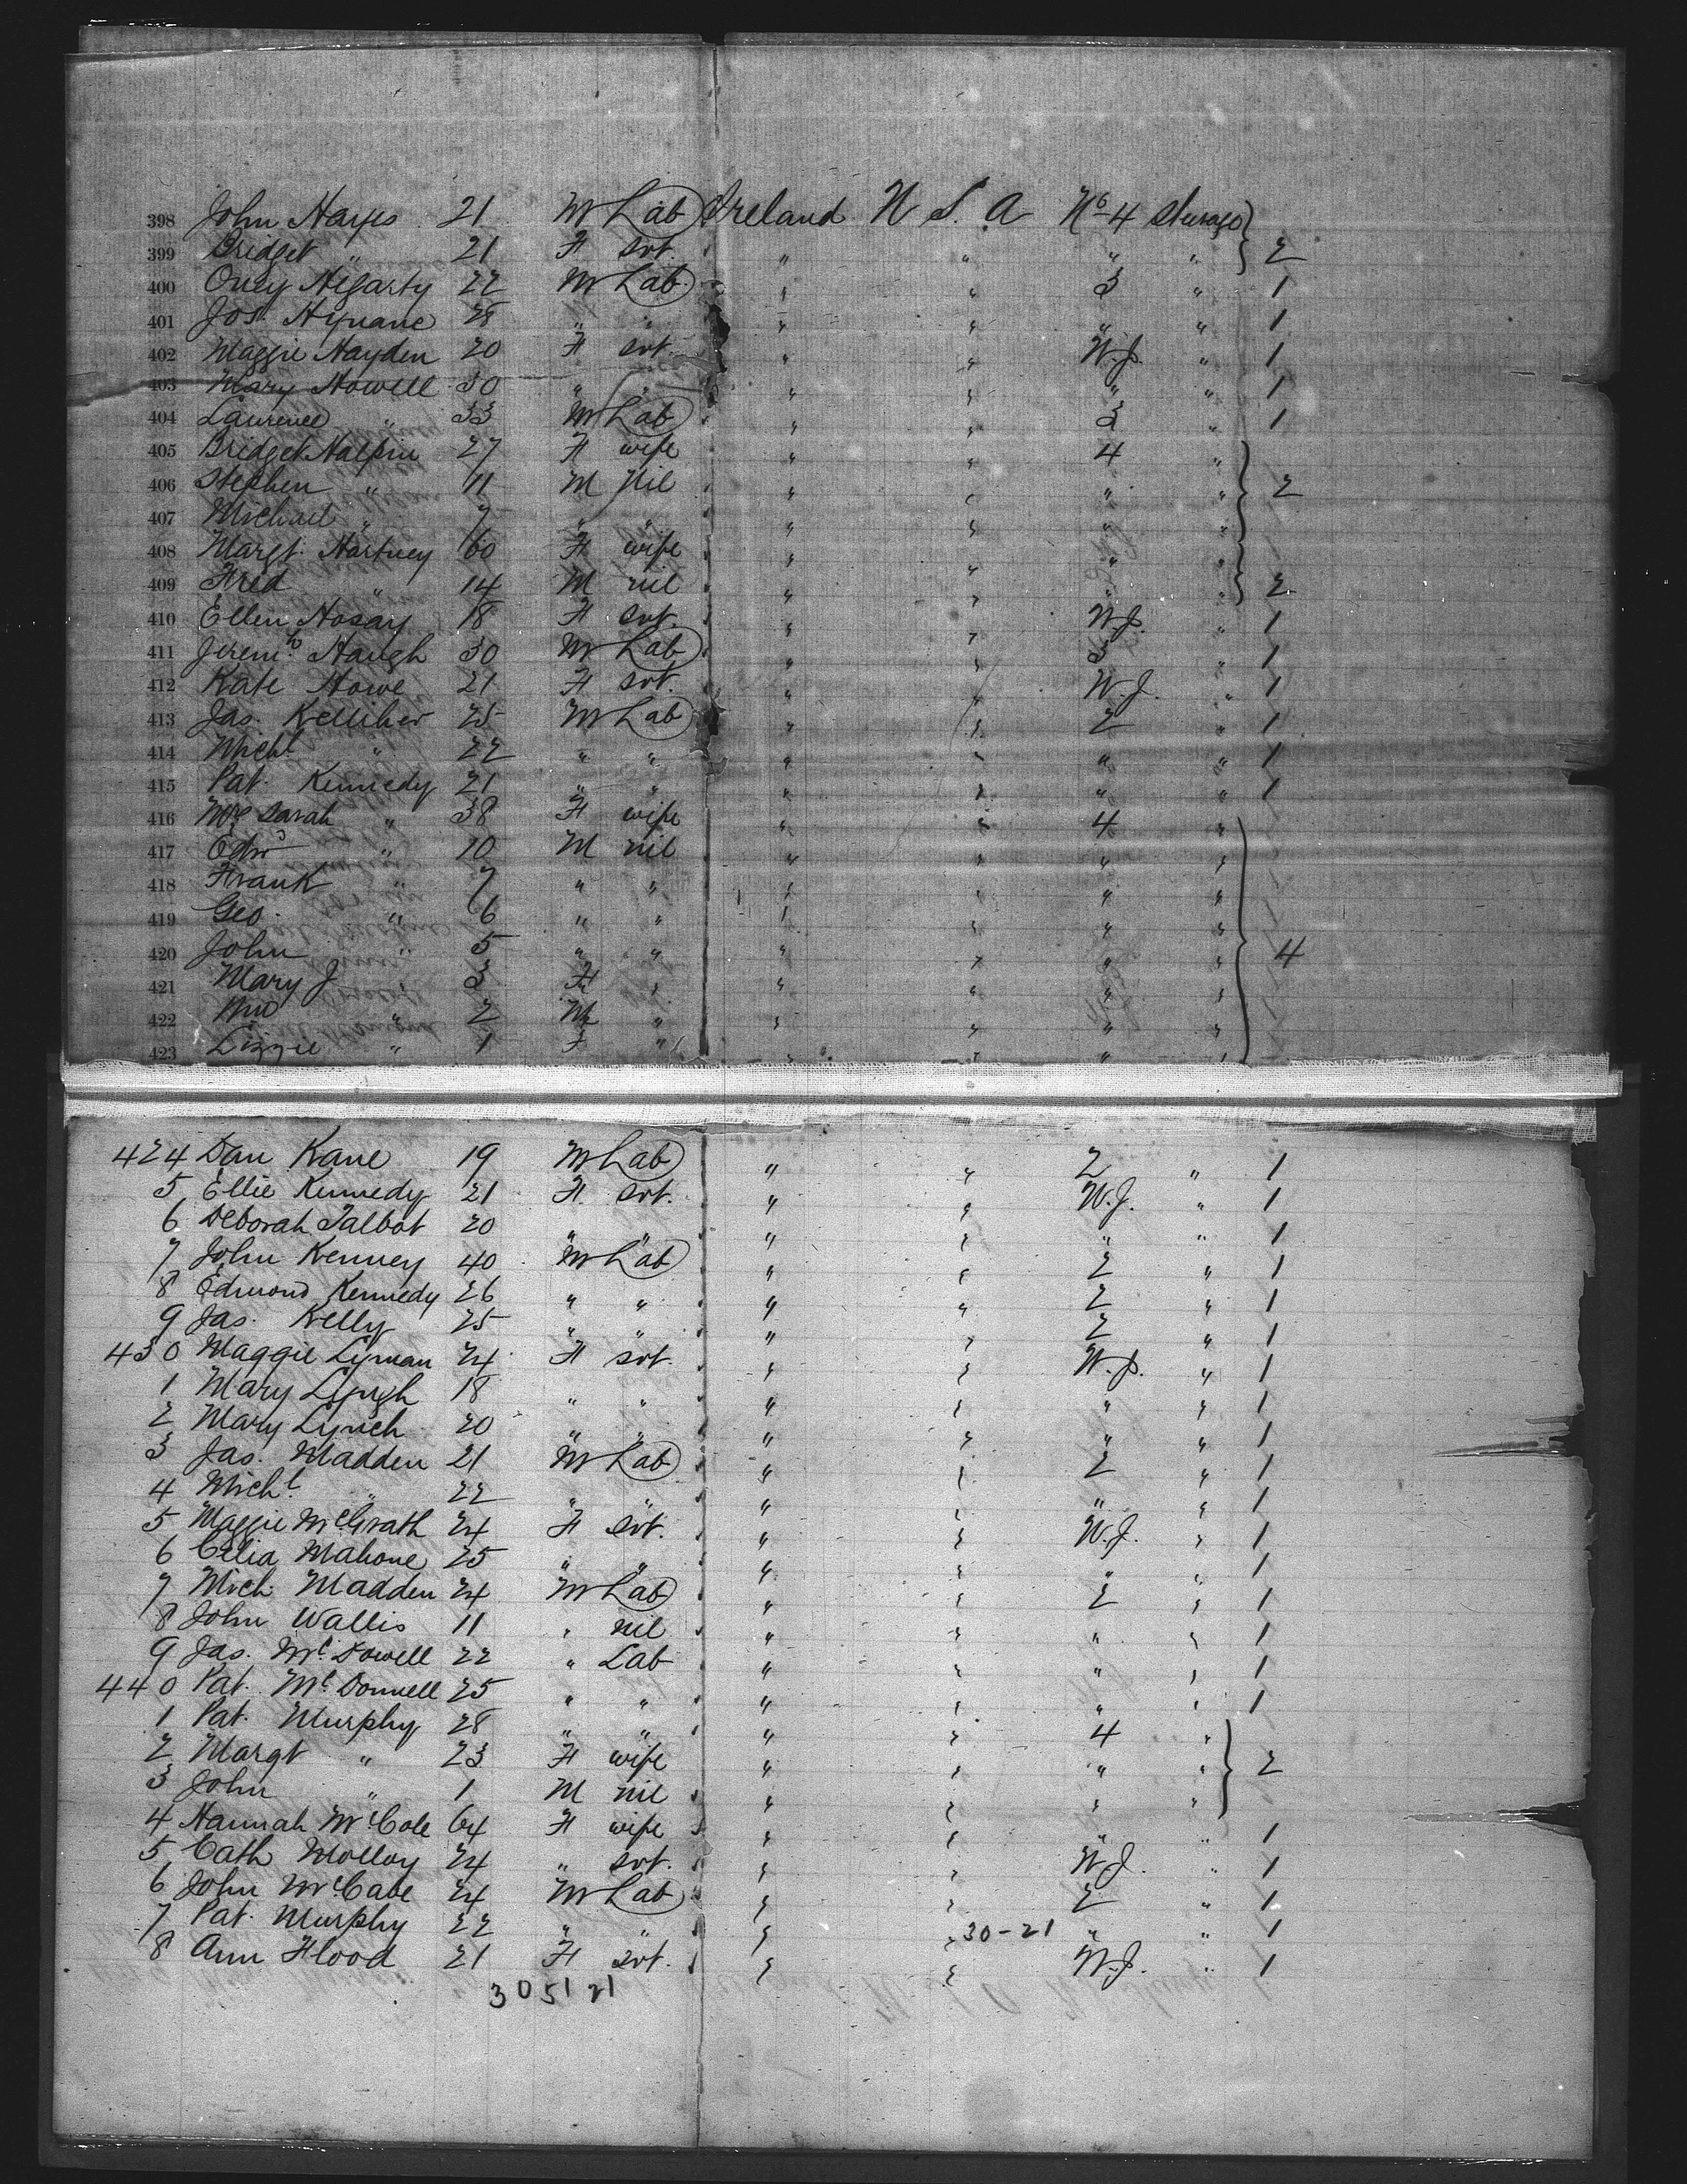 398 John Hayes 21 M Lab Ireland U S. A No 4 Steerage
399 Bridget " 21 F svt. " " " " 2
400 Oney Hegarty 22 M Lab. " " 3 " 1
401 Jos. Hynane 28 " " " " " " 1
402 Maggie Hayden 20 F svt. " " W.J. " 1
403 Mary Howell 30 " " " " " " 1
404 Laurence " 33 M Lab " " 3 " 1
405 Bridget Halpin 27 F wife " " 4 "
406 Stephen " 11 M Nil " " " " 2
407 Michael " 7 " " " " " "
408 Margt. Hartney 60 F wife " " " "
409 Fred " 14 M nil " " " " 2
410 Ellen Hosay 18 F svt. " " W.J. " 1
411 Jeremh. Haugh 30 M Lab " " 3 " 1
412 Kate Howe 21 F svt. " " W.J. " 1
413 Jas. Kelliher 25 M Lab " " 2 " 1
414 Michl. " 22 " " " " " " 1
415 Pat. Kennedy 21 " " " " " " 1
416 Mrs Sarah " 38 F wife " " 4 "
417 Edwd " 10 M nil " " " "
418 Frank " 7 " " " " " "
419 Geo. " 6 " " " " " "
420 John " 5 " " " " " " 4
421 Mary J " 3 F " " " " "
422 Wm " 2 M " " " " "
423 Lizzie " 1 F " " " " "
424 Dan Kane 19 M Lab " " 2 " 1
5 Ellie Kennedy 21 F svt. " " W.J. " 1
6 Deborah Talbot 20 " " " " " " 1
7 John Kenney 40 M Lab " " 2 " 1
8 Edmond Kennedy 26 " " " " 2 " 1
9 Jas. Kelly 25 " " " " 2 " 1
430 Maggie Lyman 24 F svt. " " W.J. " 1
1 Mary Lyugh 18 " " " " " " 1
2 Mary Lynch 20 " " " " " " 1
3 Jas. Madden 21 M Lab " " 2 " 1
4 Michl. " 22 " " " " " " 1
5 Maggie McGrath 24 F svt. " " W.J. " 1
6 Celia Mahone 25 " " " " " " 1
7 Mich. Madden 24 M Lab " " 2 " 1
8 John Wallis 11 " nil " " " " 1
9 Jas. McDowell 22 " Lab " " " " 1
440 Pat. McDonnell 25 " " " " " " 1
1 Pat. Murphy 28 " " " " 4 "
2 Margt " 23 F wife " " " " 2
3 John " 1 M nil " " " "
4 Hannah McCole 64 F wife " " " " 1
5 Cath Molloy 24 " svt. " " W.J. " 1
6 John McCabe 24 M Lab " " 2 " 1
7 Pat. Murphy 22 " " " " 30-21 " " 1
8 Ann Flood 21 F svt. " " W.J. " 1
305121